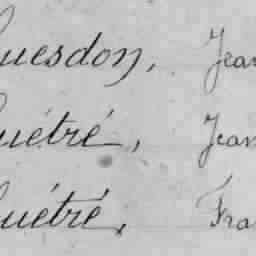 uesdon, Jean
uétré, Jean
uétré, Fra